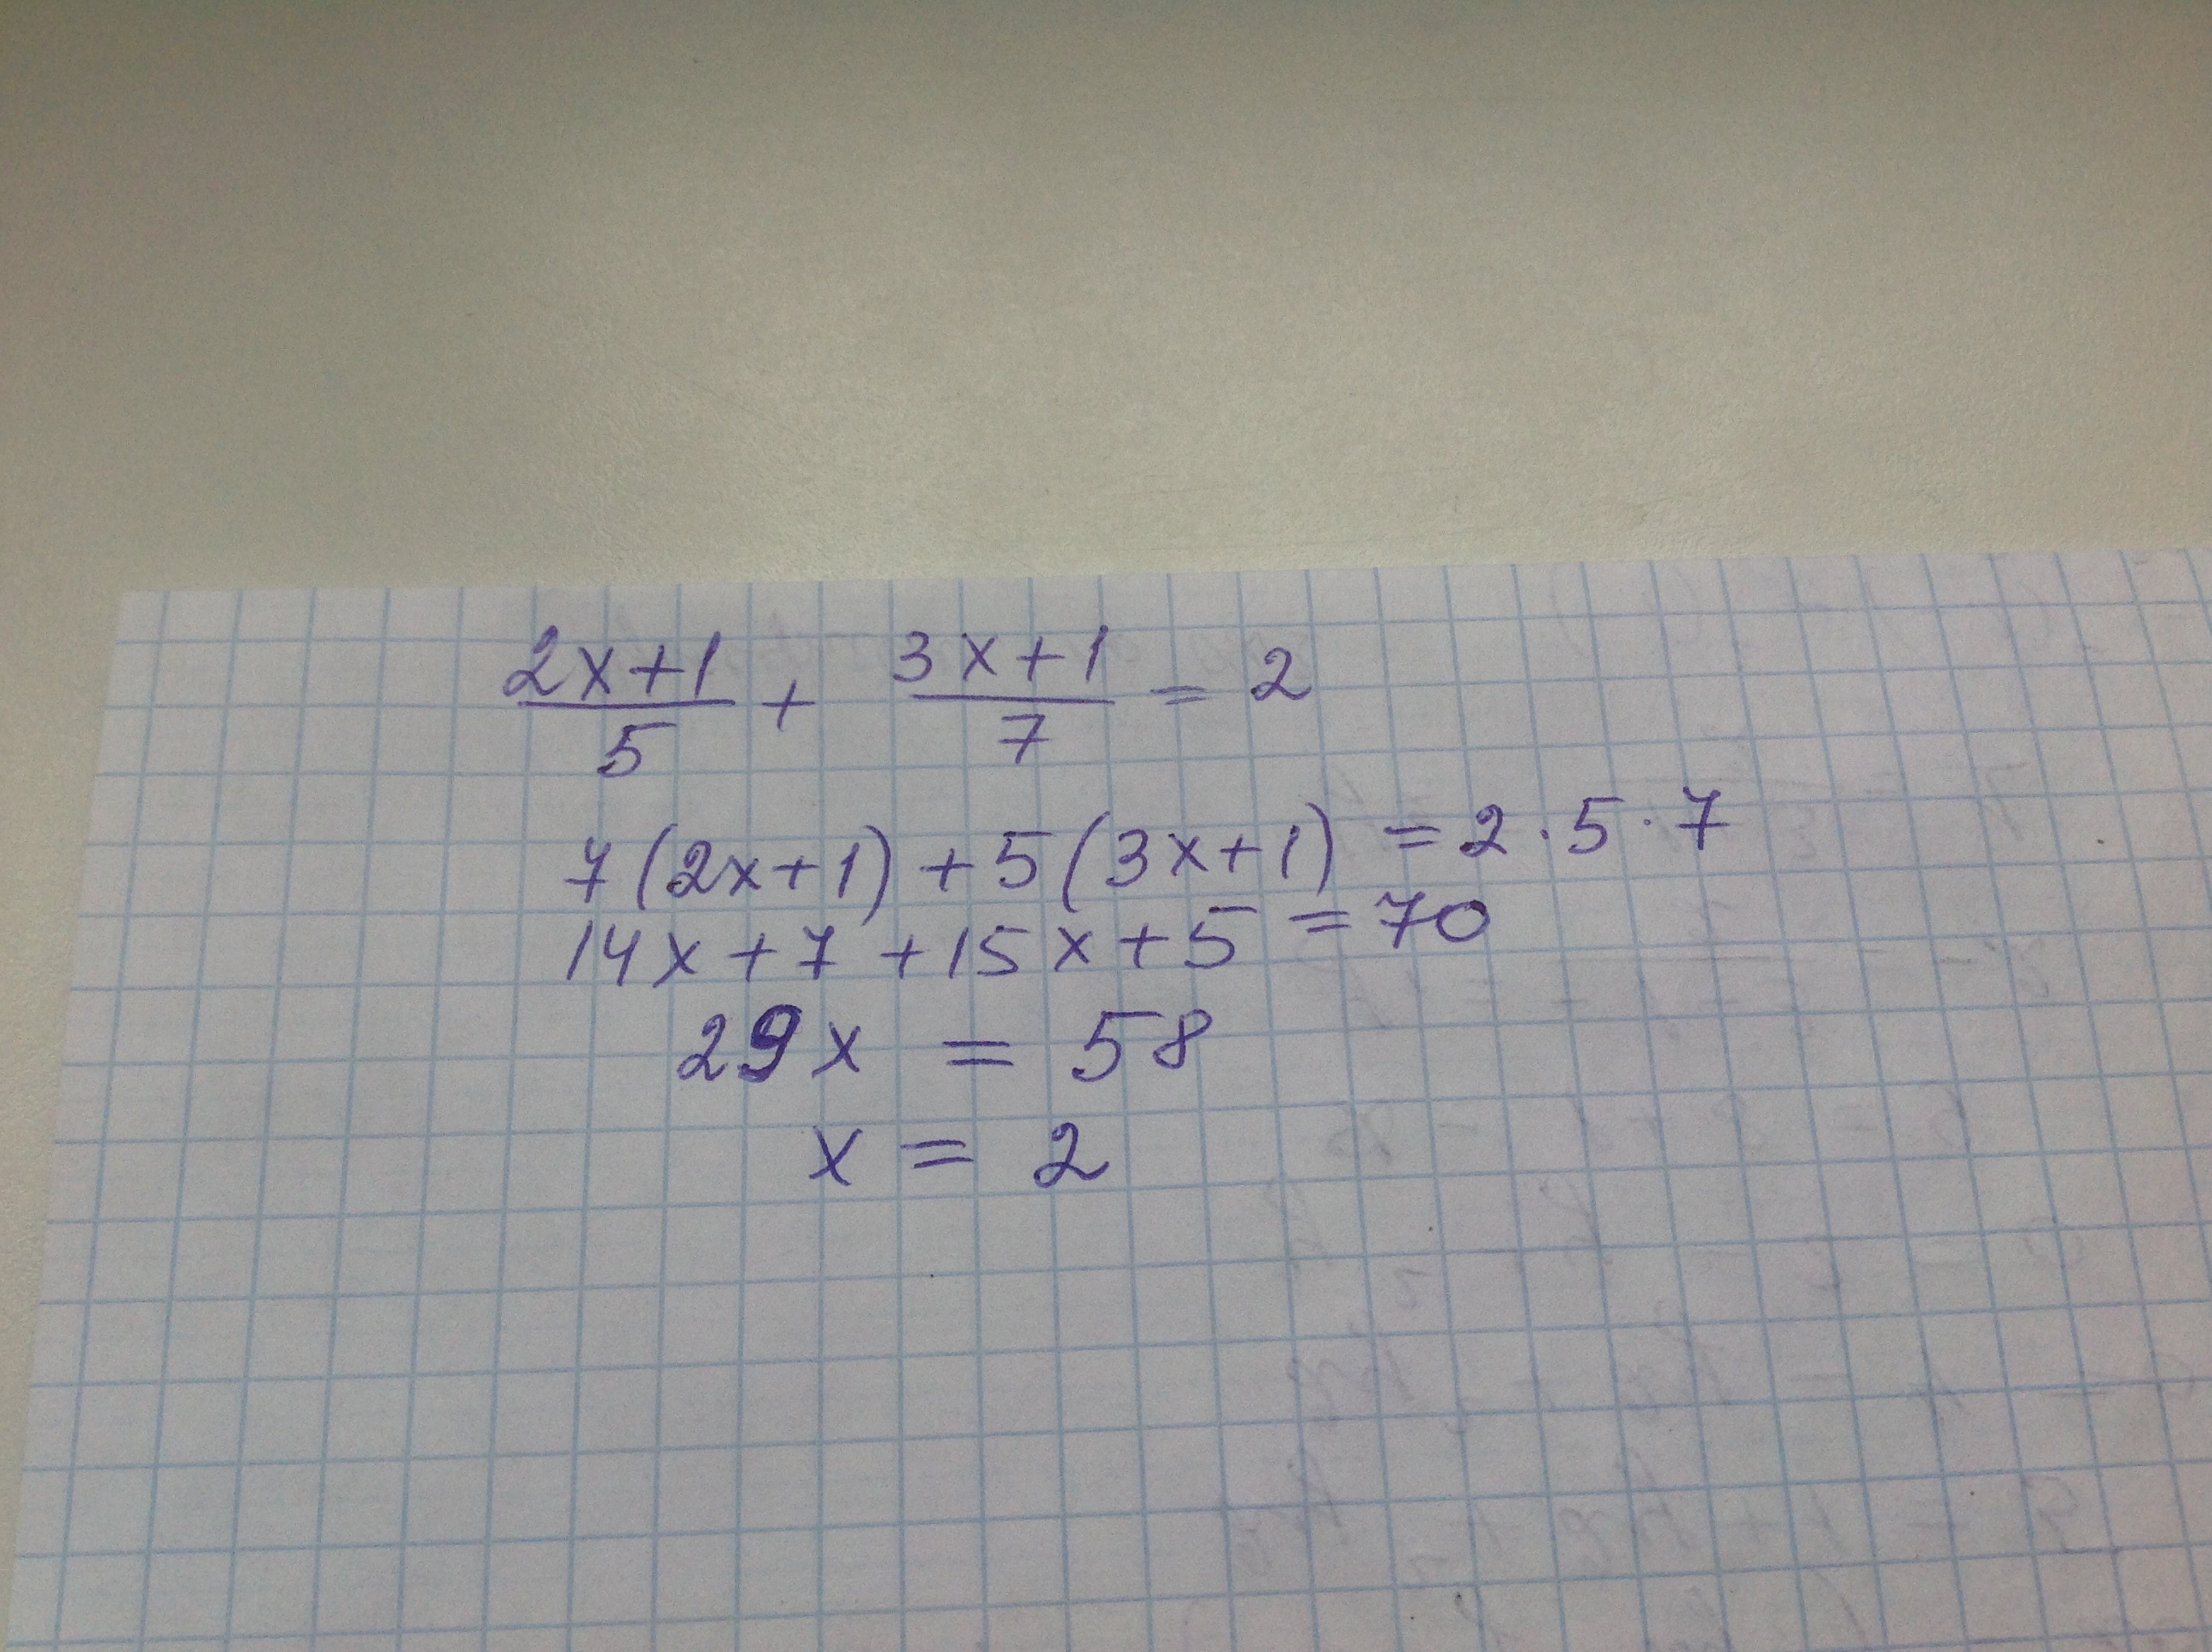 (2x+1)/5 + (3x+1)/7 = 2
7(2x+1) + 5(3x+1) = 2·5·7
14x+7+15x+5=70
29x = 58
x = 2